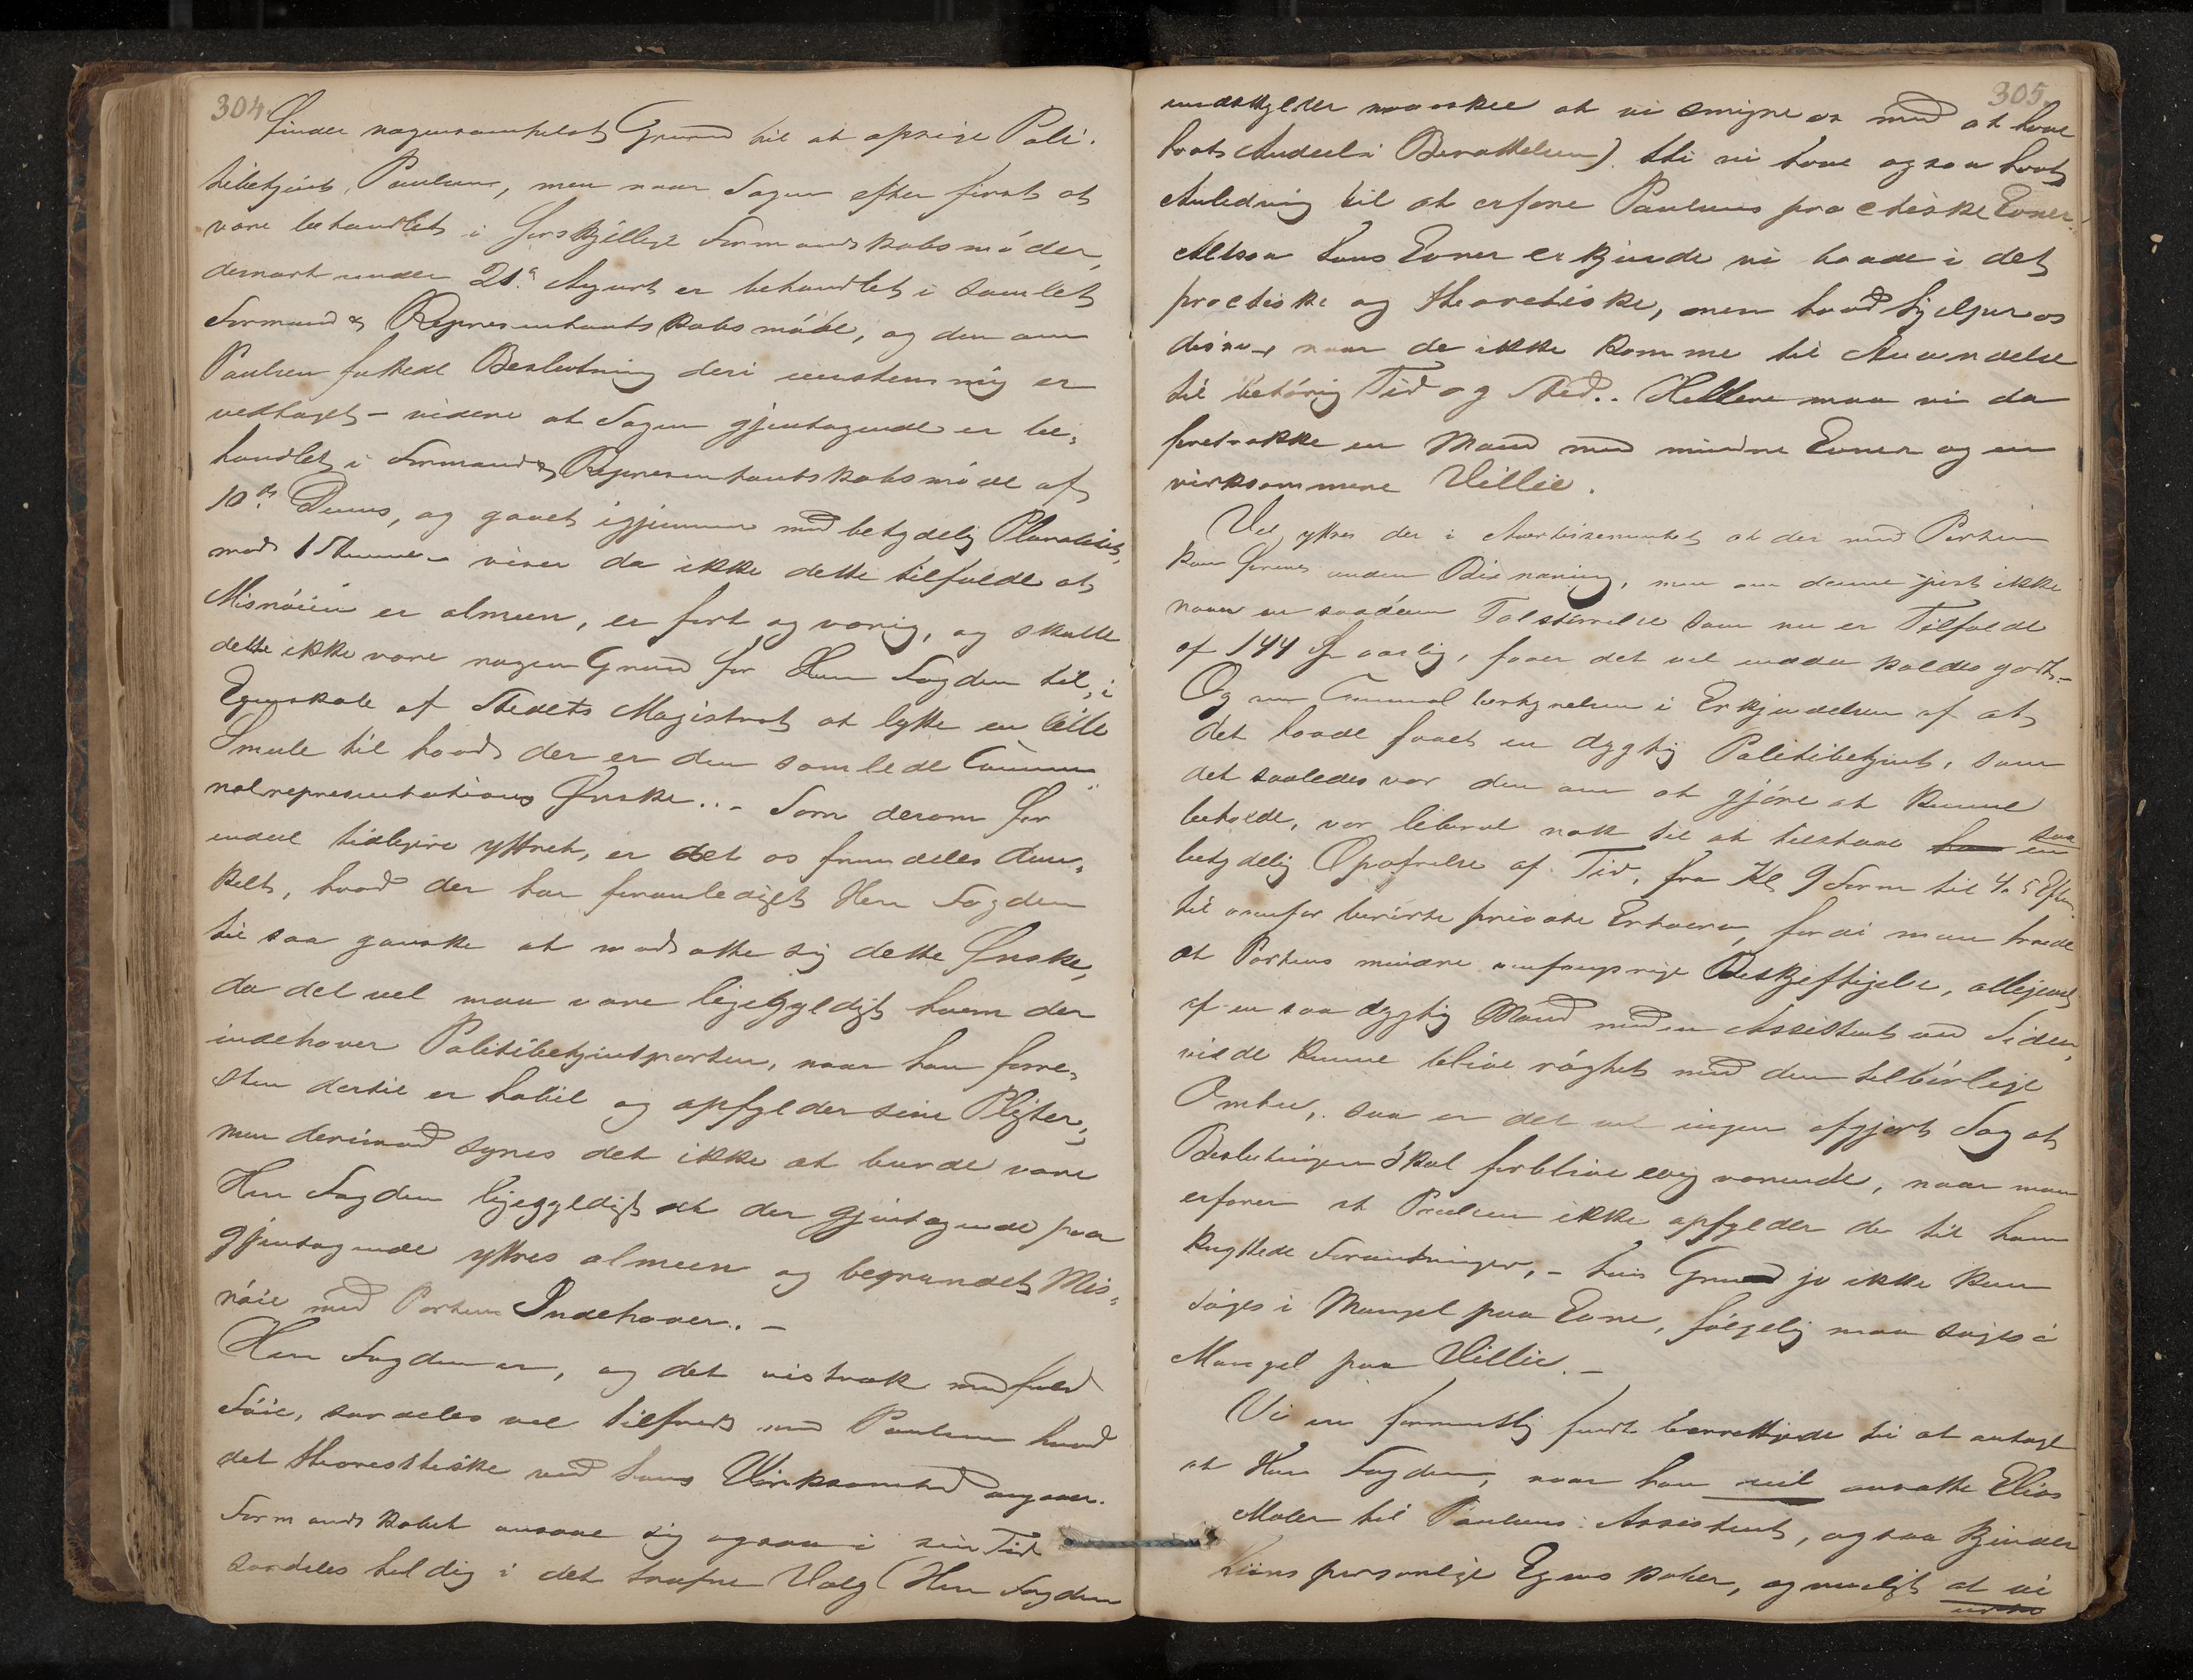 304
finder nogensomhelst Grund til at opsige Poli-
tibetjent Paulsen, men naar Sagen efter først at
være behandlet i forskjellige Formandskabsmøder,
dernæst under 21de August er behandlet i samlet
Formand & Repræsentantskabsmöde, og den om
Paulsen fattede Beslutning deri eenstemmig er
vedtaget – videre at Sagen gjentagende er be-
handlet i Formand & Repræsentantskabsmöde af
10de Dennes, og gaaet igjennem med betydelig Pluralitet,
mod 1 Stemme – viser da ikke dette tilfulde at
Misnöien er almeen, er stor og varig, og skulde
dette ikke være nogen Grund for Herr Fogden til, i
Egenskab af Stedets Magistrat at lytte en lille
Smule til hvad der er den samlede Commu-
nalrepresentations Ønske.. – Som derom for
inden tidligere yttret, er det os fremdeles dun-
kelt, hvad der har foranlediget Herr Fogden
til saa ganske at modsætte sig dette Ønske,
da det vel maa være ligegyldigt hvem der
indehaver Politibetjentposten, naar han forre-
sten dertil er habil og opfylder sine Pligter;
men derimod synes det ikke at burde være
Herr Fogden ligegyldigt at der gjentagende paa
gjentagende yttres almeen og begrundet Mis-
nöie med Postens Indehaver. –
Herr Fogden er, og det vistnok med fuld
Föie, særdeles vel tilfreds med Paulsen hvad
det theoresthiske ved hans Virksomhed angaaer.
Formandskabet ansaae sig ogsaa i sin Tid
særdeles heldig i det trufne Valg (Herr Fogden
305.
undskylder maaskee at vi smigre os med at have
havt Andeel i Besættelsen). thi vi have ogsaa havt
Anledning til at erfare Paulsens practiske Evner.
Altsaa hans Evner erkjende vi baade i det
practiske og theoretiske, men hvad hjelper os
disse – naar de ikke komme til Anvendelse
til behörig Tid og Sted.. Hellere maa vi da
foretrække en Mand med mindre Evner og en
virksommere Villie.
Vel yttres der i Avertissementet at der med Posten
kan forenes anden Bisnæring, men om denne just ikke
naaer en saadan Talstørrelse som nu er Tilfælde
af 144 Spd aarlig, faaer det vel endda kaldes godt. –
Og om Communalbestyrelsen i Erkjendelsen af at
det havde faaet en dygtig Politibetjent, som
det saaledes var den om at gjöre at kunne
beholde, var liberal nok til at tilstaae saa en
betydelig Opofrelse af Tid, fra Kl 9 Form til 4 a 5 Efterm.
til ovenfor berörte private Erhverv, fordi man troede
at Postens mindre omfangsrige Beskjeftigelse, alligevel
af en saa dygtig Mand med en Assistent ved Siden,
vilde kunne blive rögtet med den tilbörlige
Omhu, saa er det vel ingen afgjort Sag at
Beslutningen skal forblive evig varende, naar man
erfarer at Paulsen ikke opfylder de til ham
knyttede Forventninger, – hvis Grund jo ikke kan
söges i Mangel paa Evne, fölgelig maa söges i
Mangel paa Villie. –
Vi ere formentlig fuldt berettigede til at antage
at Herr Fogden, naar han vil ansætte Elias
Moler til Paulsens Assistent, ogsaa kjender
hans personlige Egenskaber, og muligt at vi